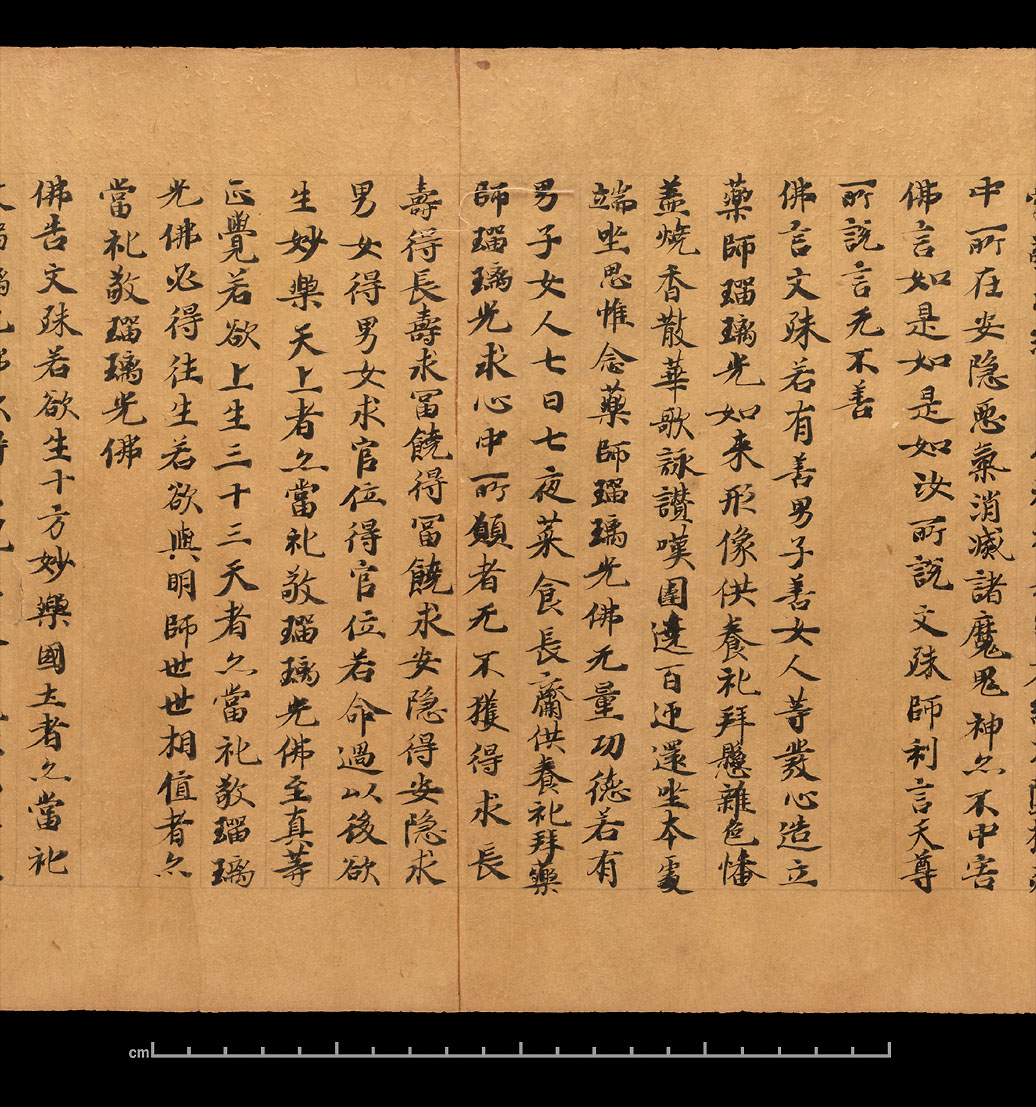 中所在安隱惡氣消滅諸魔鬼神亦不中害
佛言如是如是如汝所說文殊師利言天尊
所說言无不善
佛言文殊若有善男子善女人等發心造立
藥師瑠璃光如来形像供養礼拜懸雜色幡
盖燒香散華歌詠讃嘆圍遶百迊還坐本處
端坐思惟念藥師瑠璃光佛无量功德若有
男子女人七日七夜菜食長齋供養礼拜藥
師瑠璃光求心中所願者无不獲得求長
壽得長壽求冨饒得冨饒求安隱得安隱求
男女得男女求官位得官位若命過以後欲
生妙樂天上者亦當礼敬瑠璃光佛至真等
正覺若欲上生三十三天者亦當礼敬瑠璃
光佛必得往生若欲與明師世世相值者亦
當礼敬瑠璃光佛
佛告文殊若欲生十方妙樂國土者亦當礼